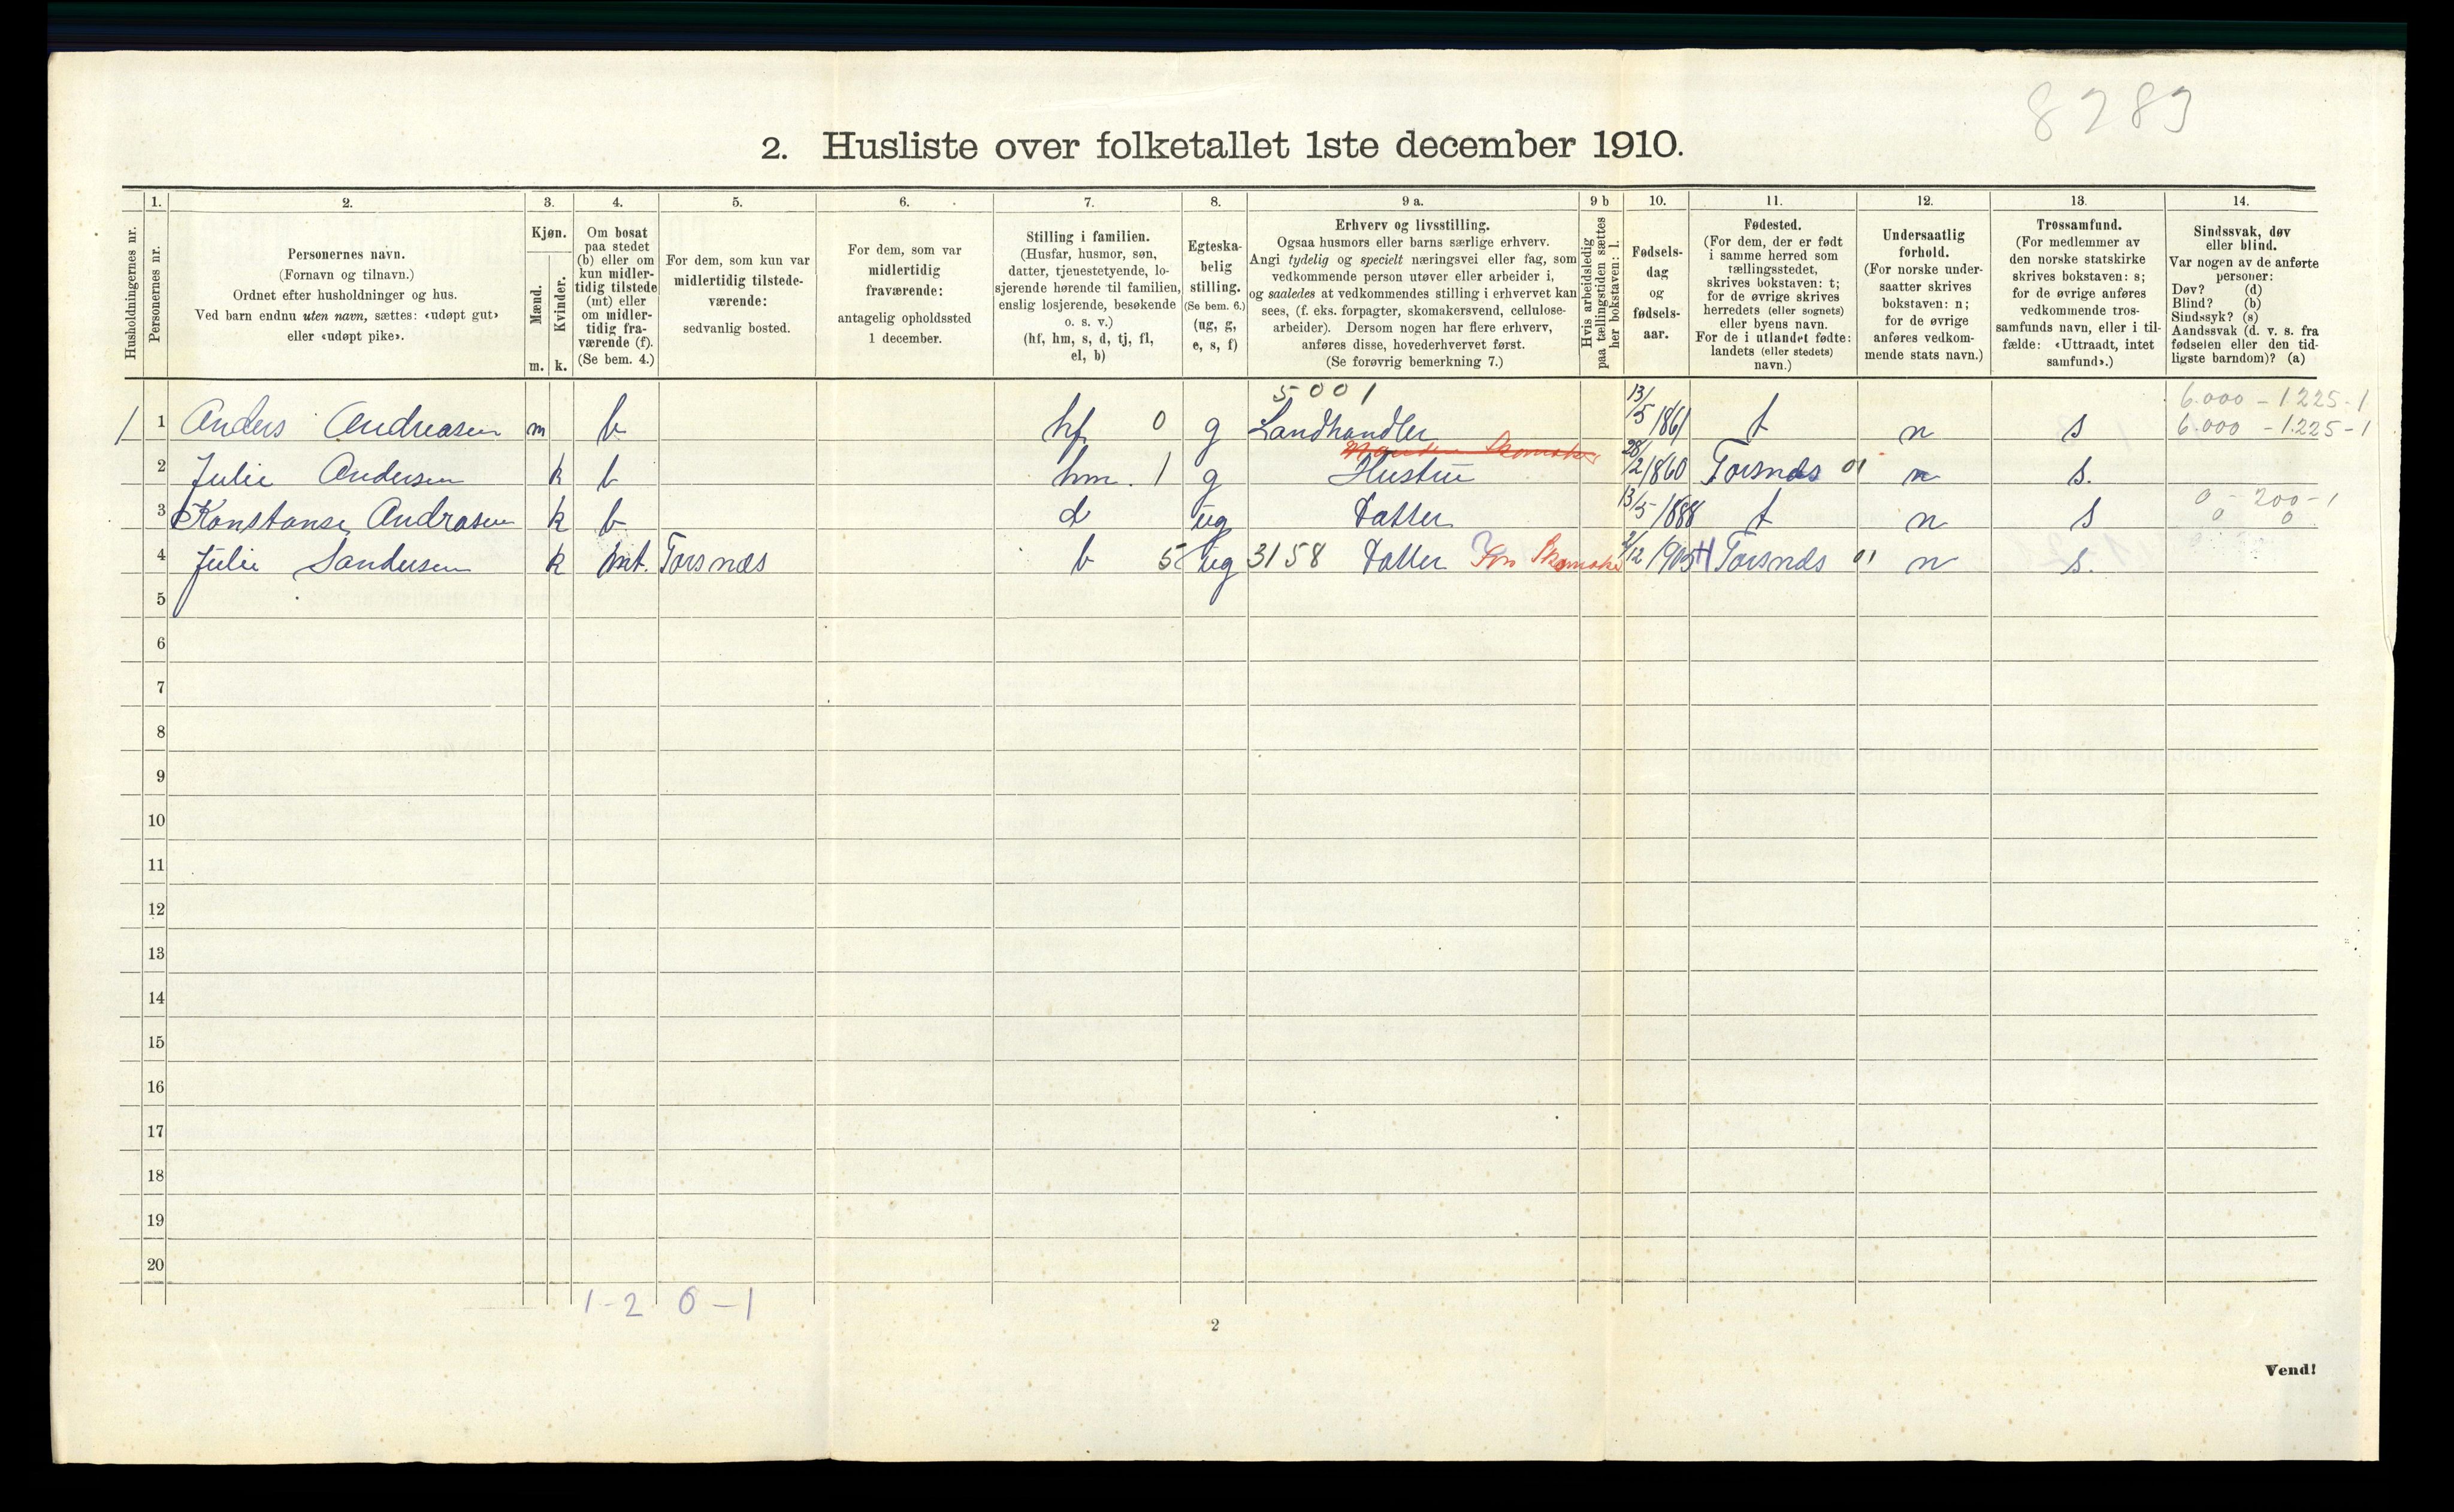 8283
2. Husliste over folketallet 1ste december 1910.
Husholdningernes nr.
1. Personernes nr.
2. Personernes navn.
(Fornavn og tilnavn.)
Ordnet efter husholdninger og hus.
Ved barn endnu uten navn, sættes: «udøpt gut»
eller «udøpt pike».
3. Kjøn.
Mænd. Kvinder.
m. k.
4. Om bosat
paa stedet
(b) eller om
kun midler-
tidig tilstede
(mt) eller
om midler-
tidig fra-
værende (f).
(Se bem. 4.)
5. For dem, som kun var
midlertidig tilstede-
værende:
sedvanlig bosted.
6. For dem, som var
midlertidig
fraværende:
antagelig opholdssted
1 december.
7. Stilling i familien.
(Husfar, husmor, søn,
datter, tjenestetyende, lo-
sjerende hørende til familien,
enslig losjerende, besøkende
o. s. v.)
(hf, hm, s, d, tj, fl,
el, b)
8. Egteska-
belig
stilling.
(Se bem. 6.)
(ug, g,
e, s, f)
9 a. Erhverv og livsstilling.
Ogsaa husmors eller barns særlige erhverv.
Angi tydelig og specielt næringsvei eller fag, som
vedkommende person utøver eller arbeider i,
og saaledes at vedkommendes stilling i erhvervet kan
sees, (f. eks. forpagter, skomakersvend, cellulose-
arbeider). Dersom nogen har flere erhverv,
anføres disse, hovederhvervet først.
(Se forøvrig bemerkning 7.)
9 b Hvis arbeidsledig
paa tællingstiden sættes
her bokstaven: l.
10. Fødsels-
dag
og
fødsels-
aar.
11. Fødested.
(For dem, der er født
i samme herred som
tællingsstedet,
skrives bokstaven: t;
for de øvrige skrives
herredets (eller sognets)
eller byens navn.
For de i utlandet fødte:
landets (eller stedets)
navn.)
12. Undersaatlig
forhold.
(For norske under-
saatter skrives
bokstaven: n;
for de øvrige
anføres vedkom-
mende stats navn.)
13. Trossamfund.
(For medlemmer av
den norske statskirke
skrives bokstaven: s;
for de øvrige anføres
vedkommende tros-
samfunds navn, eller i til-
fælde: «Uttraadt, intet
samfund».)
14. Sindssvak, døv
eller blind.
Var nogen av de anførte
personer:
Døv? (d)
Blind? (b)
Sindssyk? (s)
Aandssvak (d. v. s. fra
fødselen eller den tid-
ligste barndom)? (a)
5001 6.000 - 1.225 - 1
1 1 Anders Andreasen m b hf 0 g Landhandler 13/5 1861 t n s 6.000 - 1.225 - 1
2 Julie Andersen k b hm. 1 g Hustru 28/12 1860 Torsnæs 01 n s.
3 Konstanse Andrasen k b d ug Datter 13/5 1888 t n s 0 - 200 - 1
0 0
4 Julie Sandersen k mt. Torsnæs b 5 ug 3158 Datter Skomaker 2/12 1905 Torsnæs 01 n s.
5
6
7
8
9
10
11
12
13
14
15
16
17
18
19
20
1-2 0-1
2
Vend!